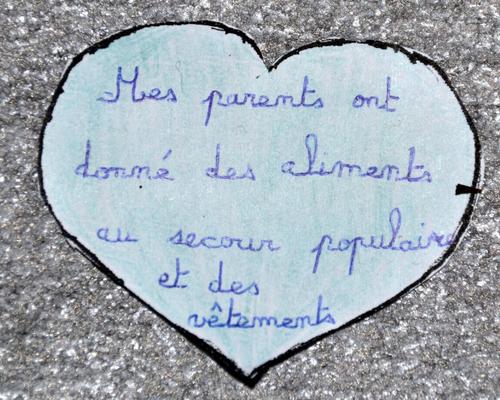 Mes parents ont
donné des aliments
au secour populaire
et des
vêtements